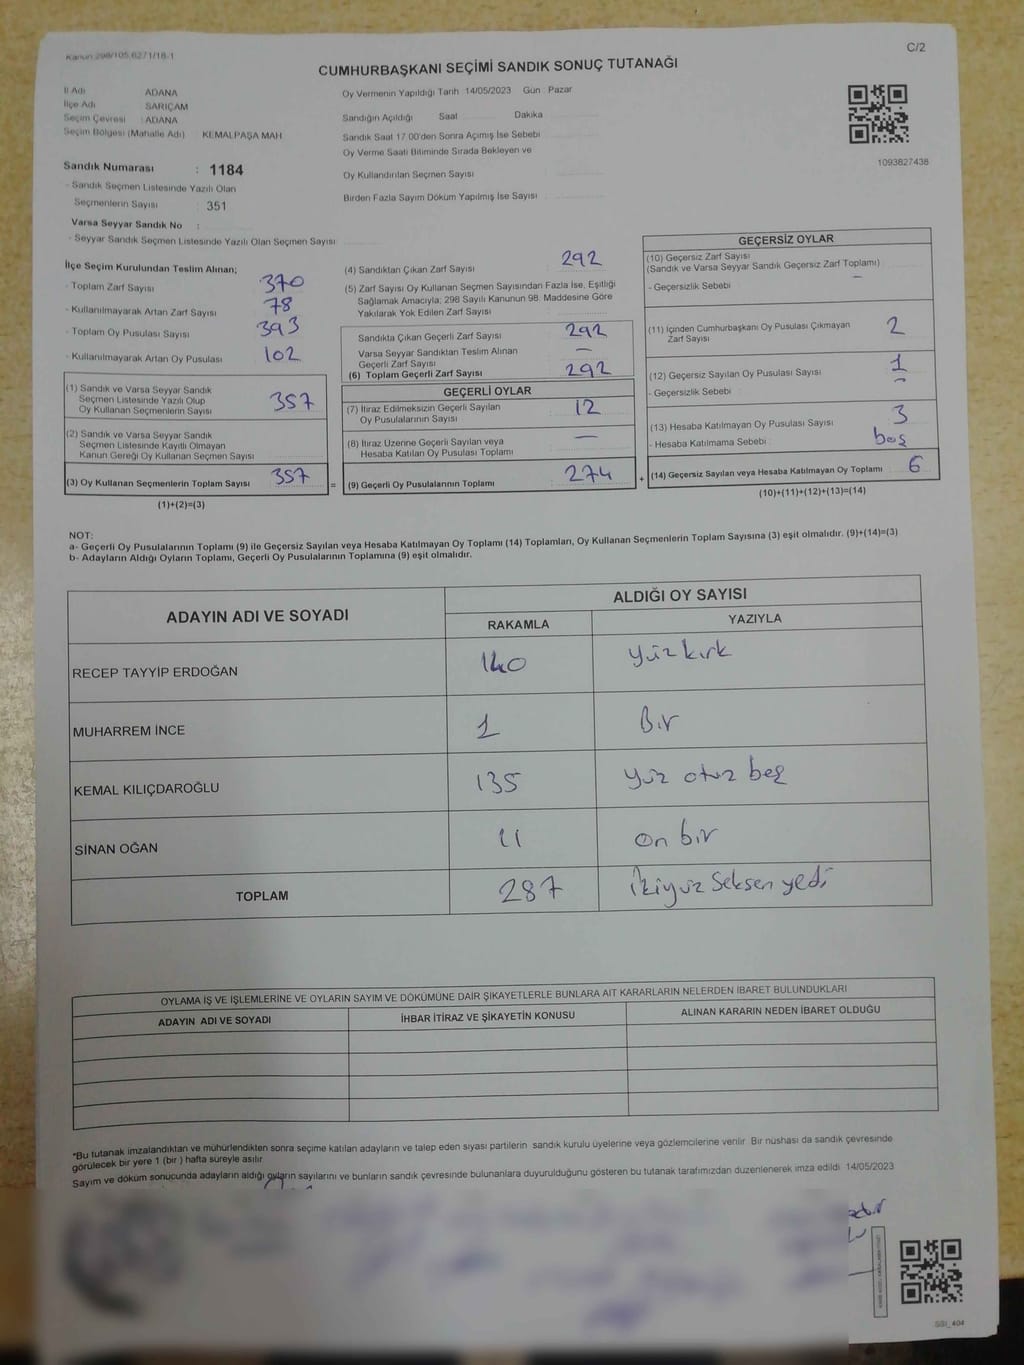 Kanun 298/105,6271/18-1
C/2
CUMHURBAŞKANI SEÇİMİ SANDIK SONUÇ TUTANAĞI
İl Adı ADANA
İlçe Adı SARIÇAM
Seçim Çevresi : ADANA
Seçim Bölgesi (Mahalle Adı) KEMALPAŞA MAH
Sandık Numarası : 1184
- Sandık Seçmen Listesinde Yazılı Olan
Seçmenlerin Sayısı : 351
Varsa Seyyar Sandık No :
- Seyyar Sandık Seçmen Listesinde Yazılı Olan Seçmen Sayısı
Oy Vermenin Yapıldığı Tarih 14/05/2023 Gün : Pazar
Sandığın Açıldığı Saat Dakika
Sandık Saat 17.00'den Sonra Açımış İse Sebebi
Oy Verme Saati Bitiminde Sırada Bekleyen ve
Oy Kullandırılan Seçmen Sayısı
Birden Fazla Sayım Döküm Yapılmış İse Sayısı
1093827438
İlçe Seçim Kurulundan Teslim Alınan;
- Toplam Zarf Sayısı 370
- Kullanılmayarak Artan Zarf Sayısı 78
- Toplam Oy Pusulası Sayısı 393
- Kullanılmayarak Artan Oy Pusulası 102
(1) Sandık ve Varsa Seyyar Sandık
Seçmen Listesinde Yazılı Olup
Oy Kullanan Seçmenlerin Sayısı 357
(2) Sandık ve Varsa Seyyar Sandık
Seçmen Listesinde Kayıtlı Olmayan
Kanun Gereği Oy Kullanan Seçmen Sayısı
(3) Oy Kullanan Seçmenlerin Toplam Sayısı 357 =
(1)+(2)=(3)
(4) Sandıktan Çıkan Zarf Sayısı 292
(5) Zarf Sayısı Oy Kullanan Seçmen Sayısından Fazla İse, Eşitliği
Sağlamak Amacıyla; 298 Sayılı Kanunun 98. Maddesine Göre
Yakılarak Yok Edilen Zarf Sayısı
Sandıkta Çıkan Geçerli Zarf Sayısı 292
Varsa Seyyar Sandıktan Teslim Alınan
Geçerli Zarf Sayısı —
(6) Toplam Geçerli Zarf Sayısı 292
GEÇERLİ OYLAR
(7) İtiraz Edilmeksizin Geçerli Sayılan
Oy Pusulalarının Sayısı 12
(8) İtiraz Üzerine Geçerli Sayılan veya
Hesaba Katılan Oy Pusulası Toplamı —
(9) Geçerli Oy Pusulalarının Toplamı 274 +
GEÇERSİZ OYLAR
(10) Geçersiz Zarf Sayısı
(Sandık ve Varsa Seyyar Sandık Geçersiz Zarf Toplamı) —
- Geçersizlik Sebebi
(11) İçinden Cumhurbaşkanı Oy Pusulası Çıkmayan
Zarf Sayısı 2
(12) Geçersiz Sayılan Oy Pusulası Sayısı 1
- Geçersizlik Sebebi —
(13) Hesaba Katılmayan Oy Pusulası Sayısı 3
- Hesaba Katılmama Sebebi boş
(14) Geçersiz Sayılan veya Hesaba Katılmayan Oy Toplamı 6
(10)+(11)+(12)+(13)=(14)
NOT:
a- Geçerli Oy Pusulalarının Toplamı (9) ile Geçersiz Sayılan veya Hesaba Katılmayan Oy Toplamı (14) Toplamları, Oy Kullanan Seçmenlerin Toplam Sayısına (3) eşit olmalıdır. (9)+(14)=(3)
b- Adayların Aldığı Oyların Toplamı, Geçerli Oy Pusulalarının Toplamına (9) eşit olmalıdır.
ADAYIN ADI VE SOYADI ALDIĞI OY SAYISI
RAKAMLA YAZIYLA
RECEP TAYYİP ERDOĞAN 140 yüz kırk
MUHARREM İNCE 1 Bir
KEMAL KILIÇDAROĞLU 135 yüz otuz beş
SİNAN OĞAN 11 on bir
TOPLAM 287 İkiyüz Seksen yedi
OYLAMA İŞ VE İŞLEMLERİNE VE OYLARIN SAYIM VE DÖKÜMÜNE DAİR ŞİKAYETLERLE BUNLARA AİT KARARLARIN NELERDEN İBARET BULUNDUKLARI
ADAYIN ADI VE SOYADI İHBAR İTİRAZ VE ŞİKAYETİN KONUSU ALINAN KARARIN NEDEN İBARET OLDUĞU
*Bu tutanak imzalandıktan ve mühürlendikten sonra seçime katılan adayların ve talep eden siyasi partilerin sandık kurulu üyelerine veya gözlemcilerine verilir. Bir nüshası da sandık çevresinde
görülecek bir yere 1 (bir) hafta süreyle asılır.
Sayım ve döküm sonucunda adayların aldığı oyların sayılarını ve bunların sandık çevresinde bulunanlara duyurulduğunu gösteren bu tutanak tarafımızdan düzenlenerek imza edildi. 14/05/2023
SSI_404